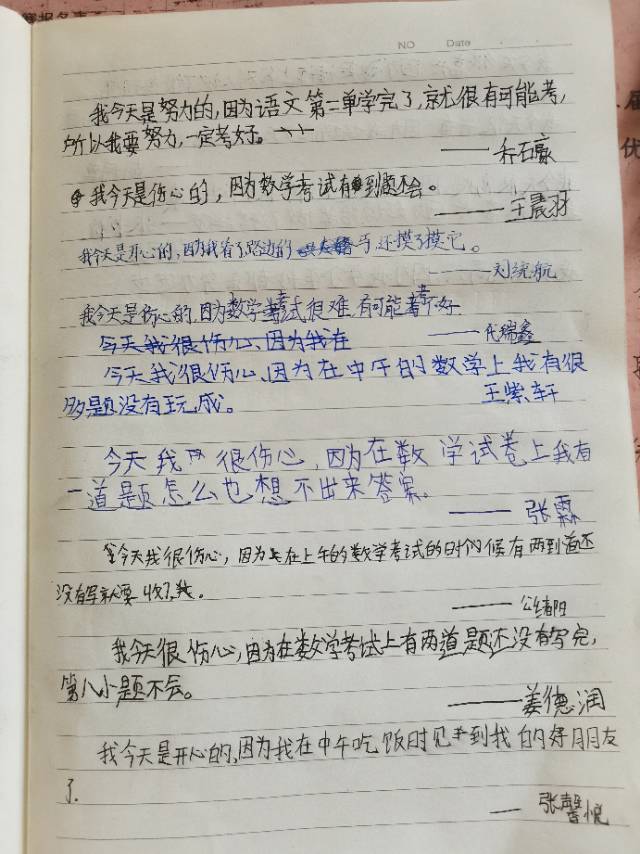 NO Date
我今天是努力的,因为语文第二单学完了,就很有可能考,
所以我要努力,一定考好。
——乔石豪
我今天是伤心的,因为数学考试有到题不会。
——王晨羽
我今天是开心的,因为我看了路边的 还摸了摸它。
——刘统航
我今天是伤心的,因为数学考试很难,有可能考不好
今天我很伤心、因为我在 ——代瑞鑫
今天我很伤心、因为在中午的数学上我有很
多题没有玩成。 王紫轩
今天我很伤心,因为在数学试卷上我有
一道题怎么也想不出来答案。
——张霖
今天我很伤心,因为在上午的数学考试的时候有两到道还
没有写就要收了我。
——公绪阳
我今天很伤心,因为在数学考试上有两道题还没有写完,
第八小题不会。
——姜德润
我今天是开心的,因为我在中午吃饭时见到我的好朋友
了.
—张馨悦